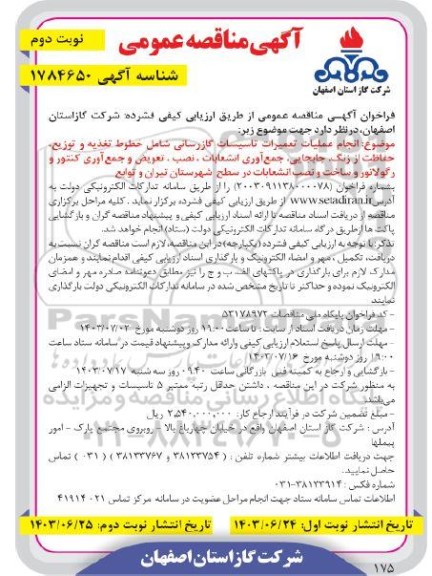 نوبت دوم
آگهی مناقصه عمومی
شناسه آگهی ۱۷۸۴۶۵۰
شرکت گاز استان اصفهان
فراخوان آگهی مناقصه عمومی از طریق ارزیابی کیفی فشرده: شرکت گاز استان
اصفهان، در نظر دارد جهت موضوع زیر:
موضوع: انجام عملیات تعمیرات تاسیسات گازرسانی شامل خطوط تغذیه و توزیع،
حفاظت از زنگ، جابجایی، جمع‌آوری انشعابات، نصب، تعویض و جمع‌آوری کنتور و
رگولاتور و ساخت و نصب انشعابات در سطح شهرستان تیران و توابع
بشماره فراخوان (۲۰۰۳۰۹۱۱۳۸۰۰۰۰۷۸) را از طریق سامانه تدارکات الکترونیکی دولت به
آدرس www.setadiran.ir از طریق ارزیابی کیفی فشرده برگزار نماید. کلیه مراحل برگزاری
مناقصه از دریافت اسناد مناقصه تا ارائه اسناد ارزیابی کیفی و پیشنهاد مناقصه گران و بازگشایی
پاکت ها از طریق درگاه سامانه تدارکات الکترونیکی دولت (ستاد) انجام خواهد شد.
تذکر: با توجه به ارزیابی کیفی فشرده (یکپارچه) در این مناقصه، لازم است مناقصه گران نسبت به
دریافت، تکمیل، مهر و امضاء الکترونیک و بارگذاری اسناد ارزیابی کیفی اقدام نمایند و همزمان
مدارک لازم برای بارگذاری در پاکتهای الف، ب و ج را نیز مطابق دعوتنامه صادره مهر و امضای
الکترونیک نموده و حداکثر تا تاریخ مشخص شده در سامانه تدارکات الکترونیکی دولت بارگذاری
نمایند
- کد فراخوان پایگاه ملی مناقصات: ۵۳۱۷۸۹۷۲
- مهلت زمان دریافت اسناد از سایت: تا ساعت ۱۹:۰۰ روز دوشنبه مورخ ۱۴۰۳/۰۷/۰۲
- مهلت ارسال پاسخ استعلام ارزیابی کیفی و ارائه مدارک و پیشنهاد قیمت در سامانه ستاد ساعت
۱۹:۰۰ روز دوشنبه مورخ ۱۴۰۳/۰۷/۱۶
- بازگشایی و ارجاع به کمیته فنی بازرگانی ساعت ۰۹:۴۰ روز سه شنبه ۱۴۰۳/۰۷/۱۷
به منظور شرکت در این مناقصه، داشتن حداقل رتبه معتبر ۵ تاسیسات و تجهیزات الزامی
می‌باشد.
- مبلغ تضمین شرکت در فرآیند ارجاع کار: ۲،۵۴۰،۰۰۰،۰۰۰ ریال
آدرس: شرکت گاز استان اصفهان واقع در خیابان چهارباغ بالا - روبروی مجتمع پارک - امور
پیمانها
جهت دریافت اطلاعات بیشتر شماره تلفن: (۳۸۱۳۲۷۵۴) (۳۸۱۳۳۷۶۷) (۰۳۱) تماس
حاصل نمایید.
شماره فکس: ۳۸۱۳۳۹۱۴-۰۳۱
اطلاعات تماس سامانه ستاد جهت انجام مراحل عضویت در سامانه مرکز تماس ۰۲۱ ۴۱۹۱۴
تاریخ انتشار نوبت اول: ۱۴۰۳/۰۶/۲۴ تاریخ انتشار نوبت دوم: ۱۴۰۳/۰۶/۲۵
شرکت گاز استان اصفهان
۱۷۵